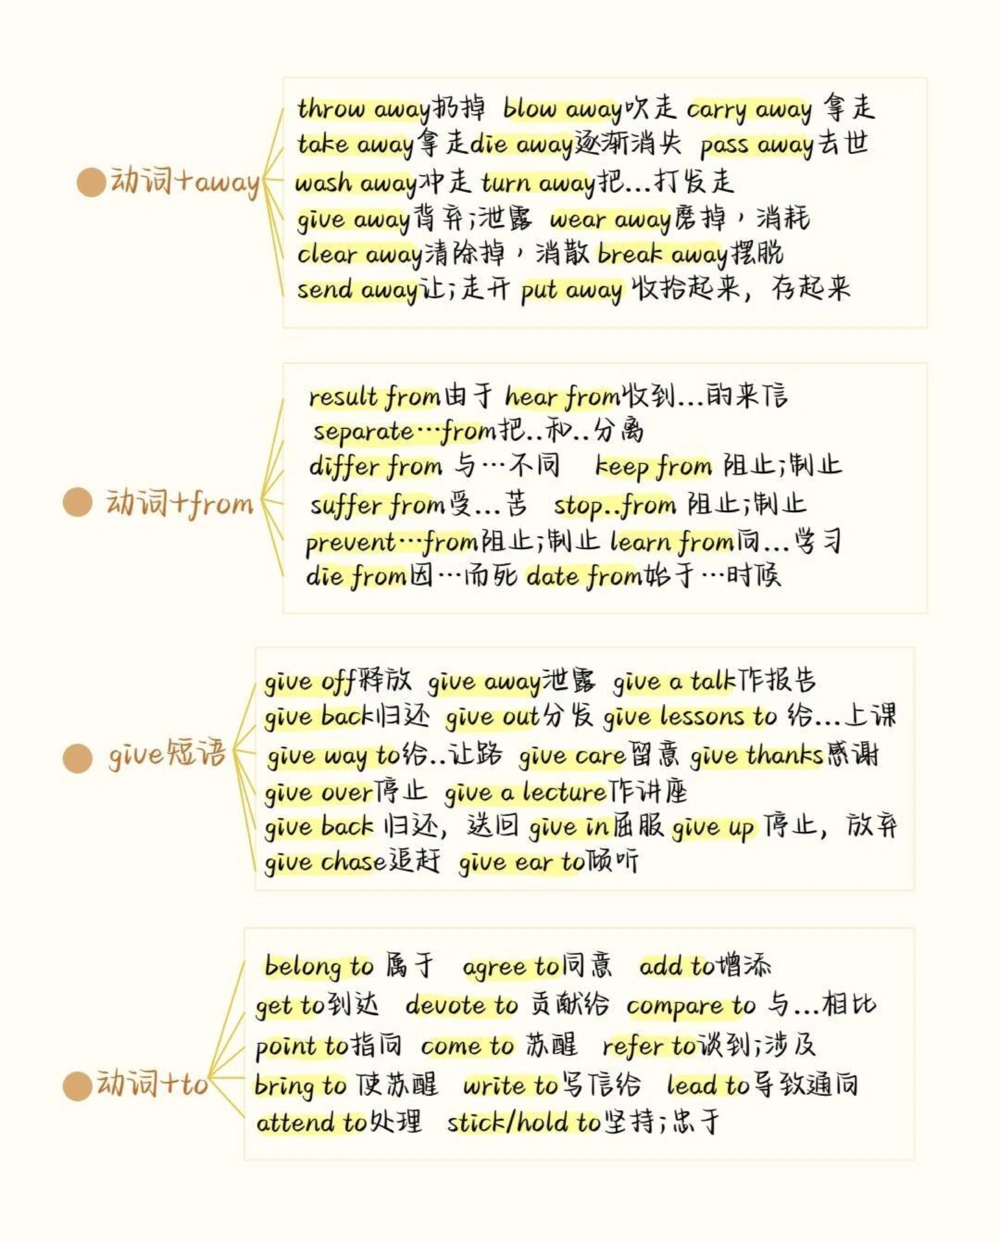 动词+away
throw away扔掉 blow away吹走 carry away 拿走
take away拿走die away逐渐消失 pass away去世
wash away冲走 turn away把...打发走
give away背弃;泄露 wear away磨掉，消耗
clear away清除掉，消散 break away摆脱
send away让;走开 put away 收拾起来，存起来
动词+from
result from由于 hear from收到...的来信
separate…from把..和..分离
differ from 与…不同 keep from 阻止;制止
suffer from受...苦 stop..from 阻止;制止
prevent…from阻止;制止 learn from向...学习
die from因…而死 date from始于…时候
give短语
give off释放 give away泄露 give a talk作报告
give back归还 give out分发 give lessons to 给...上课
give way to给..让路 give care留意 give thanks感谢
give over停止 give a lecture作讲座
give back 归还，送回 give in屈服 give up 停止，放弃
give chase追赶 give ear to倾听
动词+to
belong to 属于 agree to同意 add to增添
get to到达 devote to 贡献给 compare to 与...相比
point to指向 come to 苏醒 refer to谈到;涉及
bring to 使苏醒 write to写信给 lead to导致通向
attend to处理 stick/hold to坚持;忠于